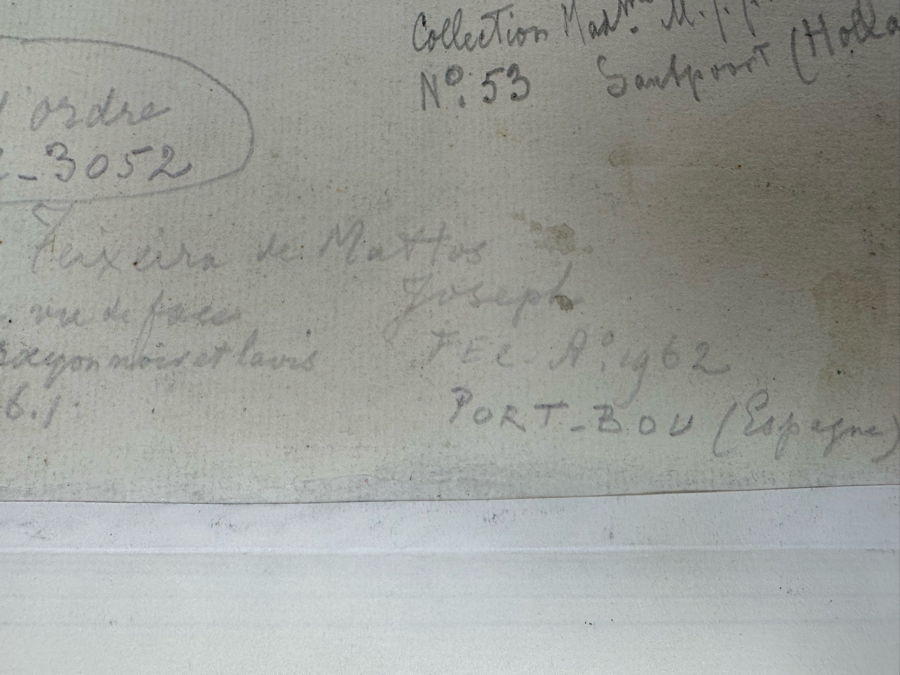 Collection Madme. M. J. J.
N°. 53 Santpoort (Holla
d'ordre
-3052
Teixeira de Mattos
Joseph
vu de face
crayon noir et lavis
FEC. A°. 1962
6.1
PORT-BOU (Espagne)